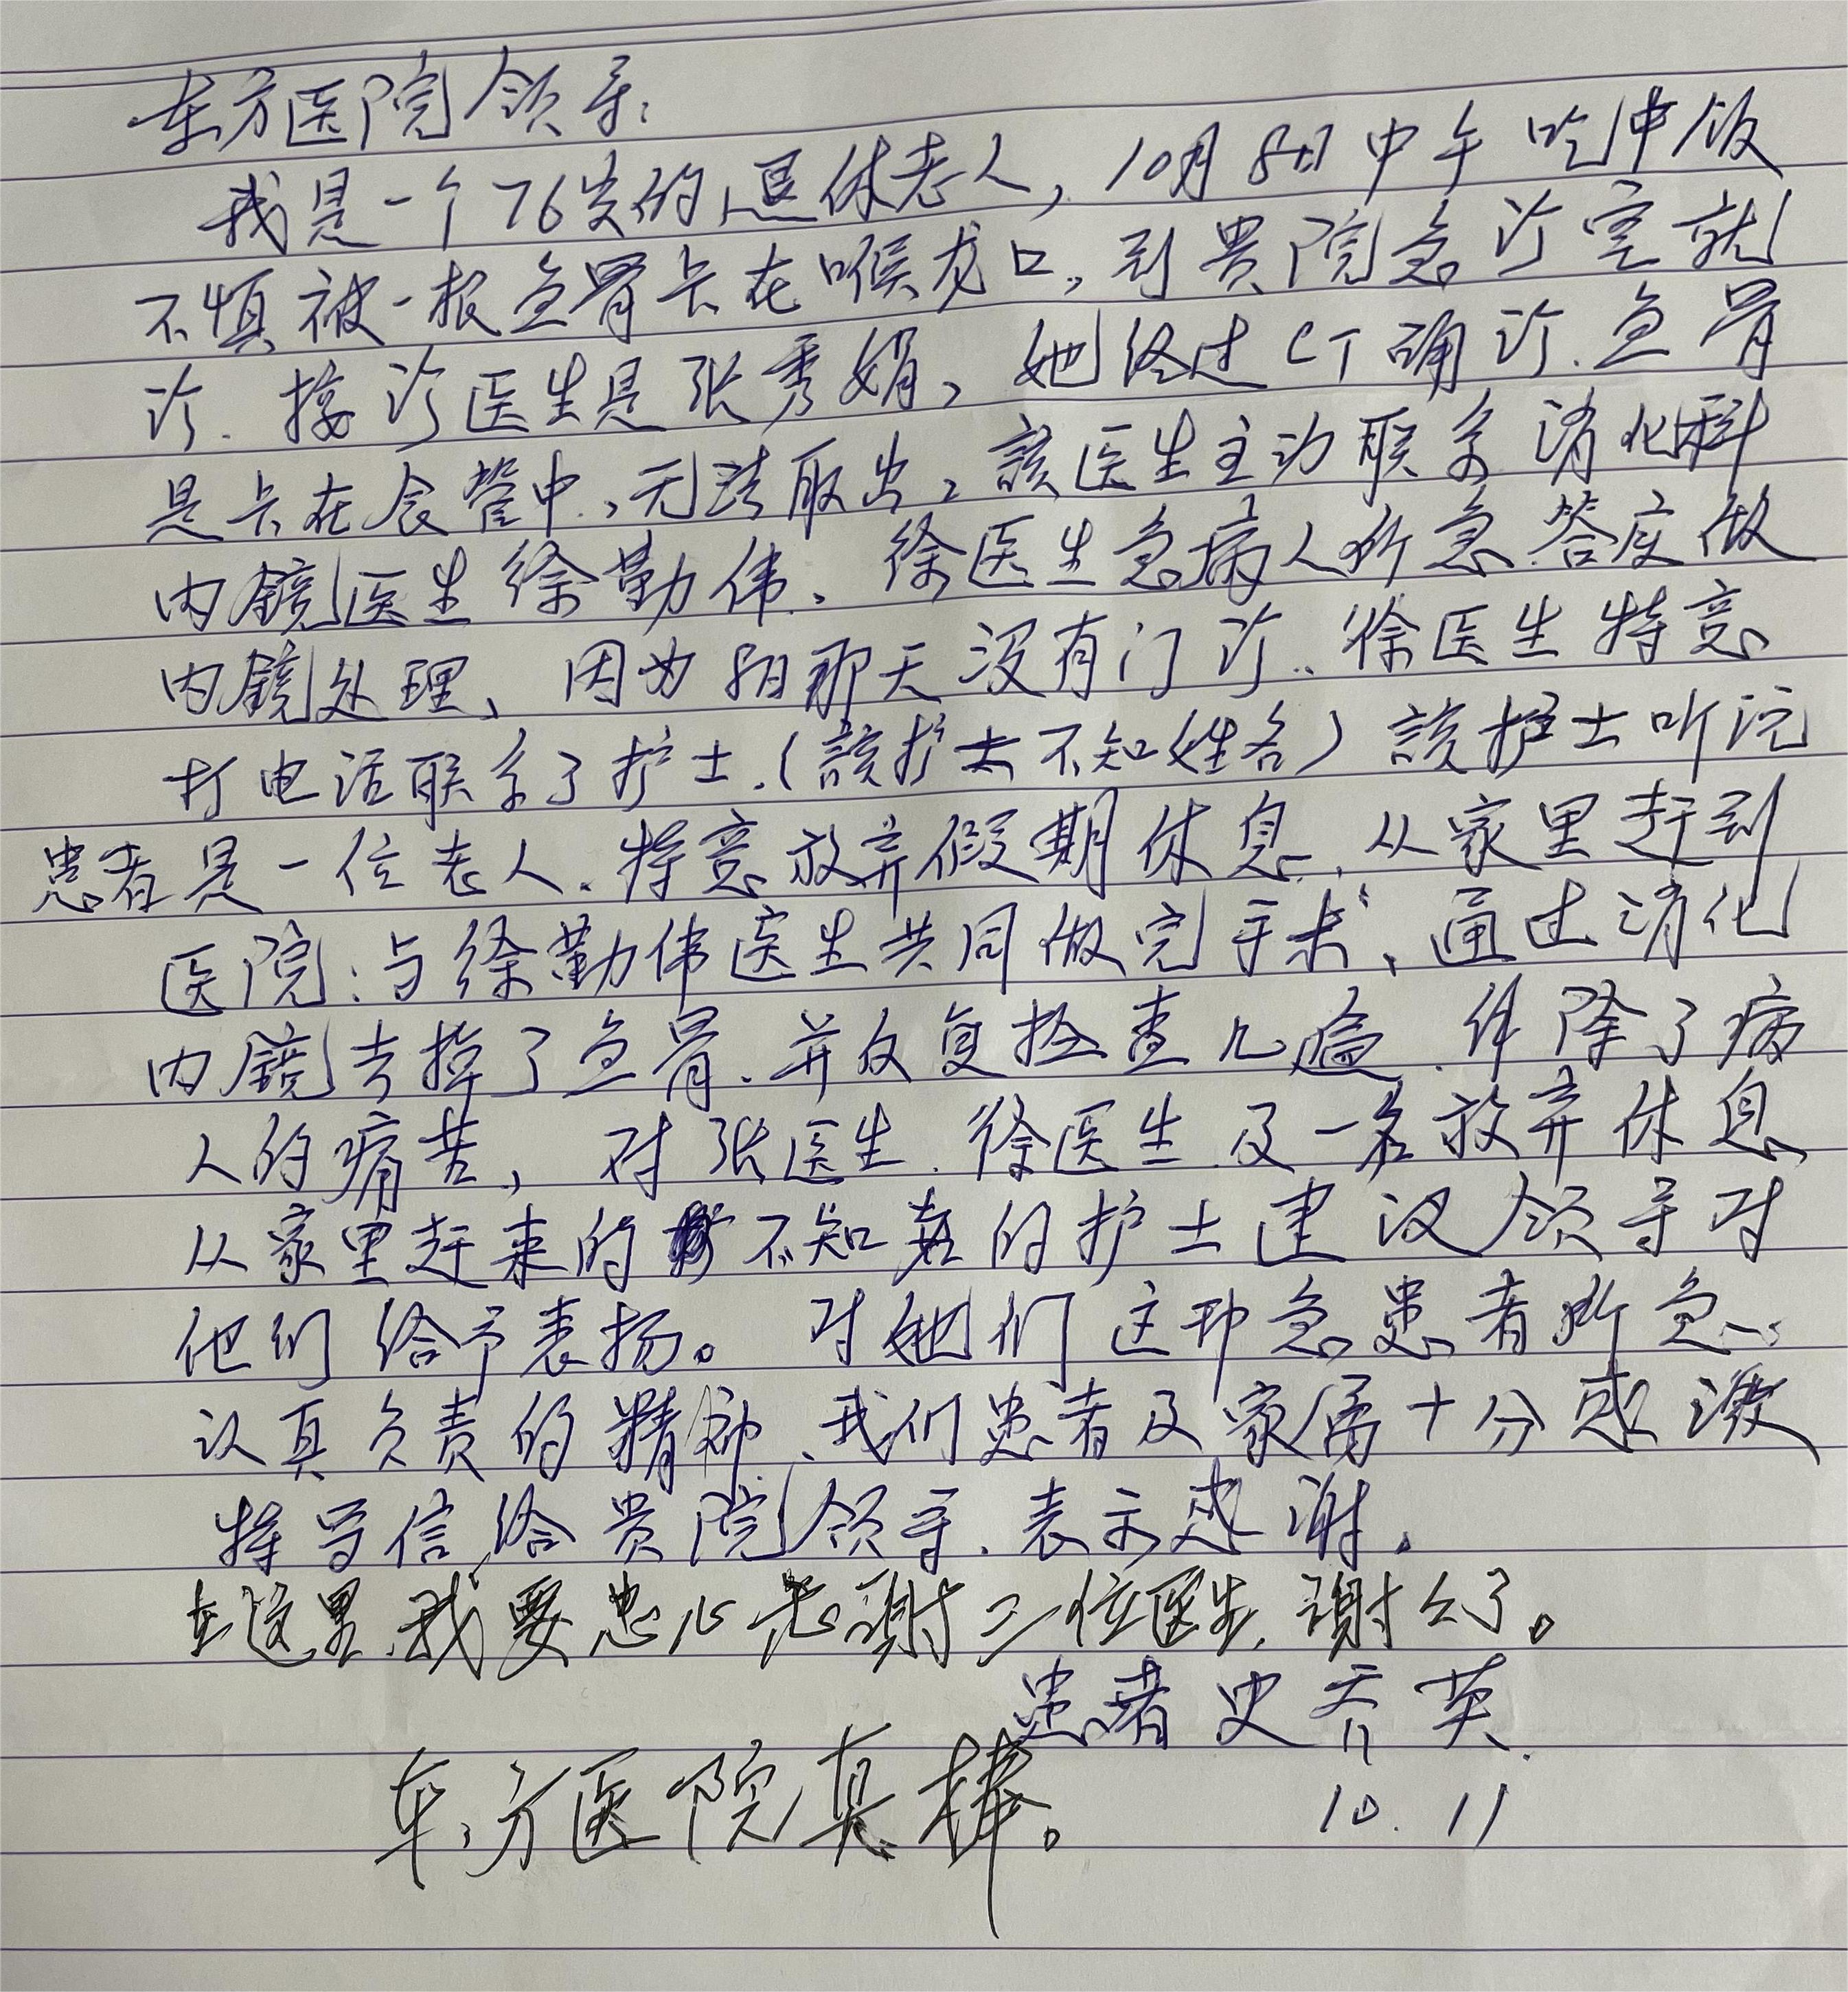 东方医院领导:
我是一个76岁的退休老人,10月8日中午吃中饭
不慎被一根鱼骨卡在喉咙口,到贵院急诊室就
诊.接诊医生是张秀娟,她经过CT确诊.鱼骨
是卡在食管中,无法取出,該医生主动联系消化科
内镜医生徐勤伟、徐医生急病人所急答应做
内镜处理、因为8日那天没有门诊..徐医生特意
打电话联系了护士.(該护士不知姓名)該护士听说
患者是一位老人.特意放弃假期休息.从家里赶到
医院:与徐勤伟医生共同做完手术、通过消化
内镜去掉了鱼骨.并反复检查几遍.解除了病
人的痛苦,对张医生.徐医生及一名放弃休息
从家里赶来的不知名的护士建议领导对
他们给予表扬。对她们这种急患者所急、
认真负责的精神、我们患者及家属十分感激
特写信给贵院领导.表示感谢.
在这里.我要忠心感謝三位医生,謝々了。
患者 史乔英.
东方医院真棒。
10.11